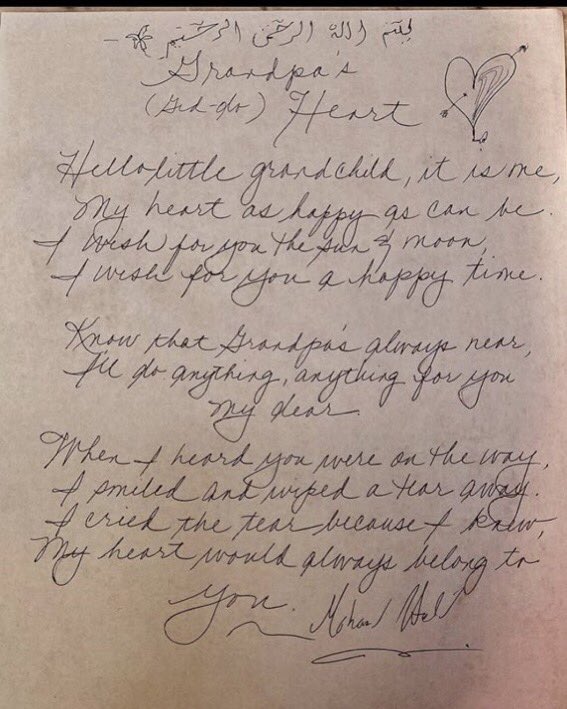 بسم الله الرحمن الرحيم
Grandpa's
(Gid-do) Heart
Hello little grandchild, it is me,
My heart as happy as can be.
I wish for you the sun & moon,
I wish for you a happy time.
Know that Grandpa's always near,
I'll do anything, anything for you
my dear.
When I heard you were on the way,
I smiled and wiped a tear away.
I cried the tear because I knew,
My heart would always belong to
You.